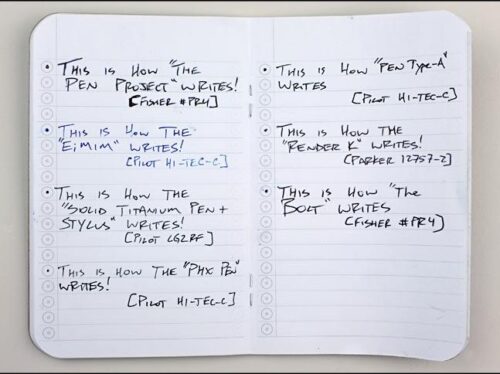 This is How "The
Pen Project" writes!
[Fisher #PR4]
This is How The
"EiMiM" writes!
[Pilot Hi-Tec-C]
This is How The
"Solid Titanium Pen +
Stylus" writes!
[Pilot LG2RF]
This is How The "PHX Pen"
writes!
[Pilot Hi-Tec-C]
This is How "Pen Type-A"
writes
[Pilot Hi-Tec-C]
This is How The
"Render K" writes!
(Parker 12757-2]
This is How "The
Bolt" writes
(Fisher #PR4]